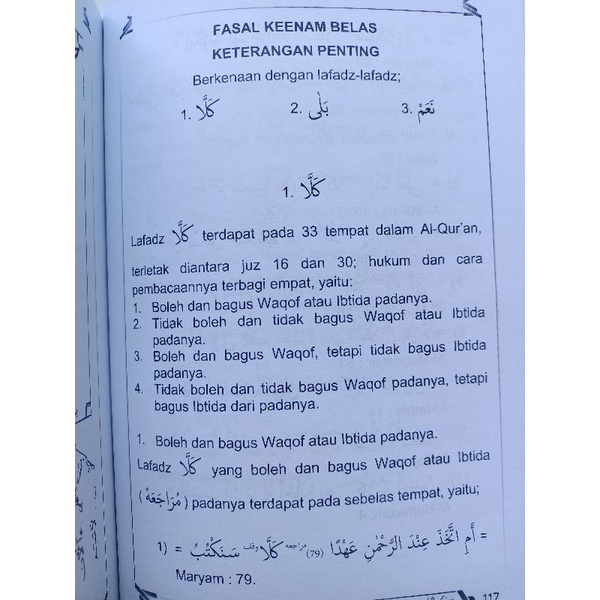 FASAL KEENAM BELAS
KETERANGAN PENTING
Berkenaan dengan lafadz-lafadz;
1. كَلَّا 2. بَلٰى 3. نَعَمْ
1. كَلَّا
Lafadz كَلَّا terdapat pada 33 tempat dalam Al-Qur'an,
terletak diantara juz 16 dan 30; hukum dan cara
pembacaannya terbagi empat, yaitu:
1. Boleh dan bagus Waqof atau Ibtida padanya.
2. Tidak boleh dan tidak bagus Waqof atau Ibtida
padanya.
3. Boleh dan bagus Waqof, tetapi tidak bagus Ibtida
padanya.
4. Tidak boleh dan tidak bagus Waqof padanya, tetapi
bagus Ibtida dari padanya.
1. Boleh dan bagus Waqof atau Ibtida padanya.
Lafadz كَلَّا yang boleh dan bagus Waqof atau Ibtida
(مُرَاجَعَهْ) padanya terdapat pada sebelas tempat, yaitu;
1) = أَمِ اتَّخَذَ عِنْدَ الرَّحْمٰنِ عَهْدًا (79) مراجعه كَلَّا وقف سَنَكْتُبُ =
Maryam : 79.
117